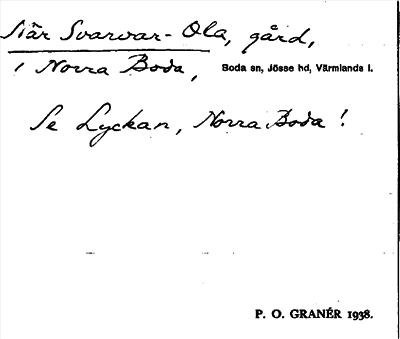 när Svarvar-Ola, gård,
i Norra Boda, Boda sn, Jösse hd, Värmlands l.
Se Lyckan, Norra Boda!
P. O. GRANÉR 1938.